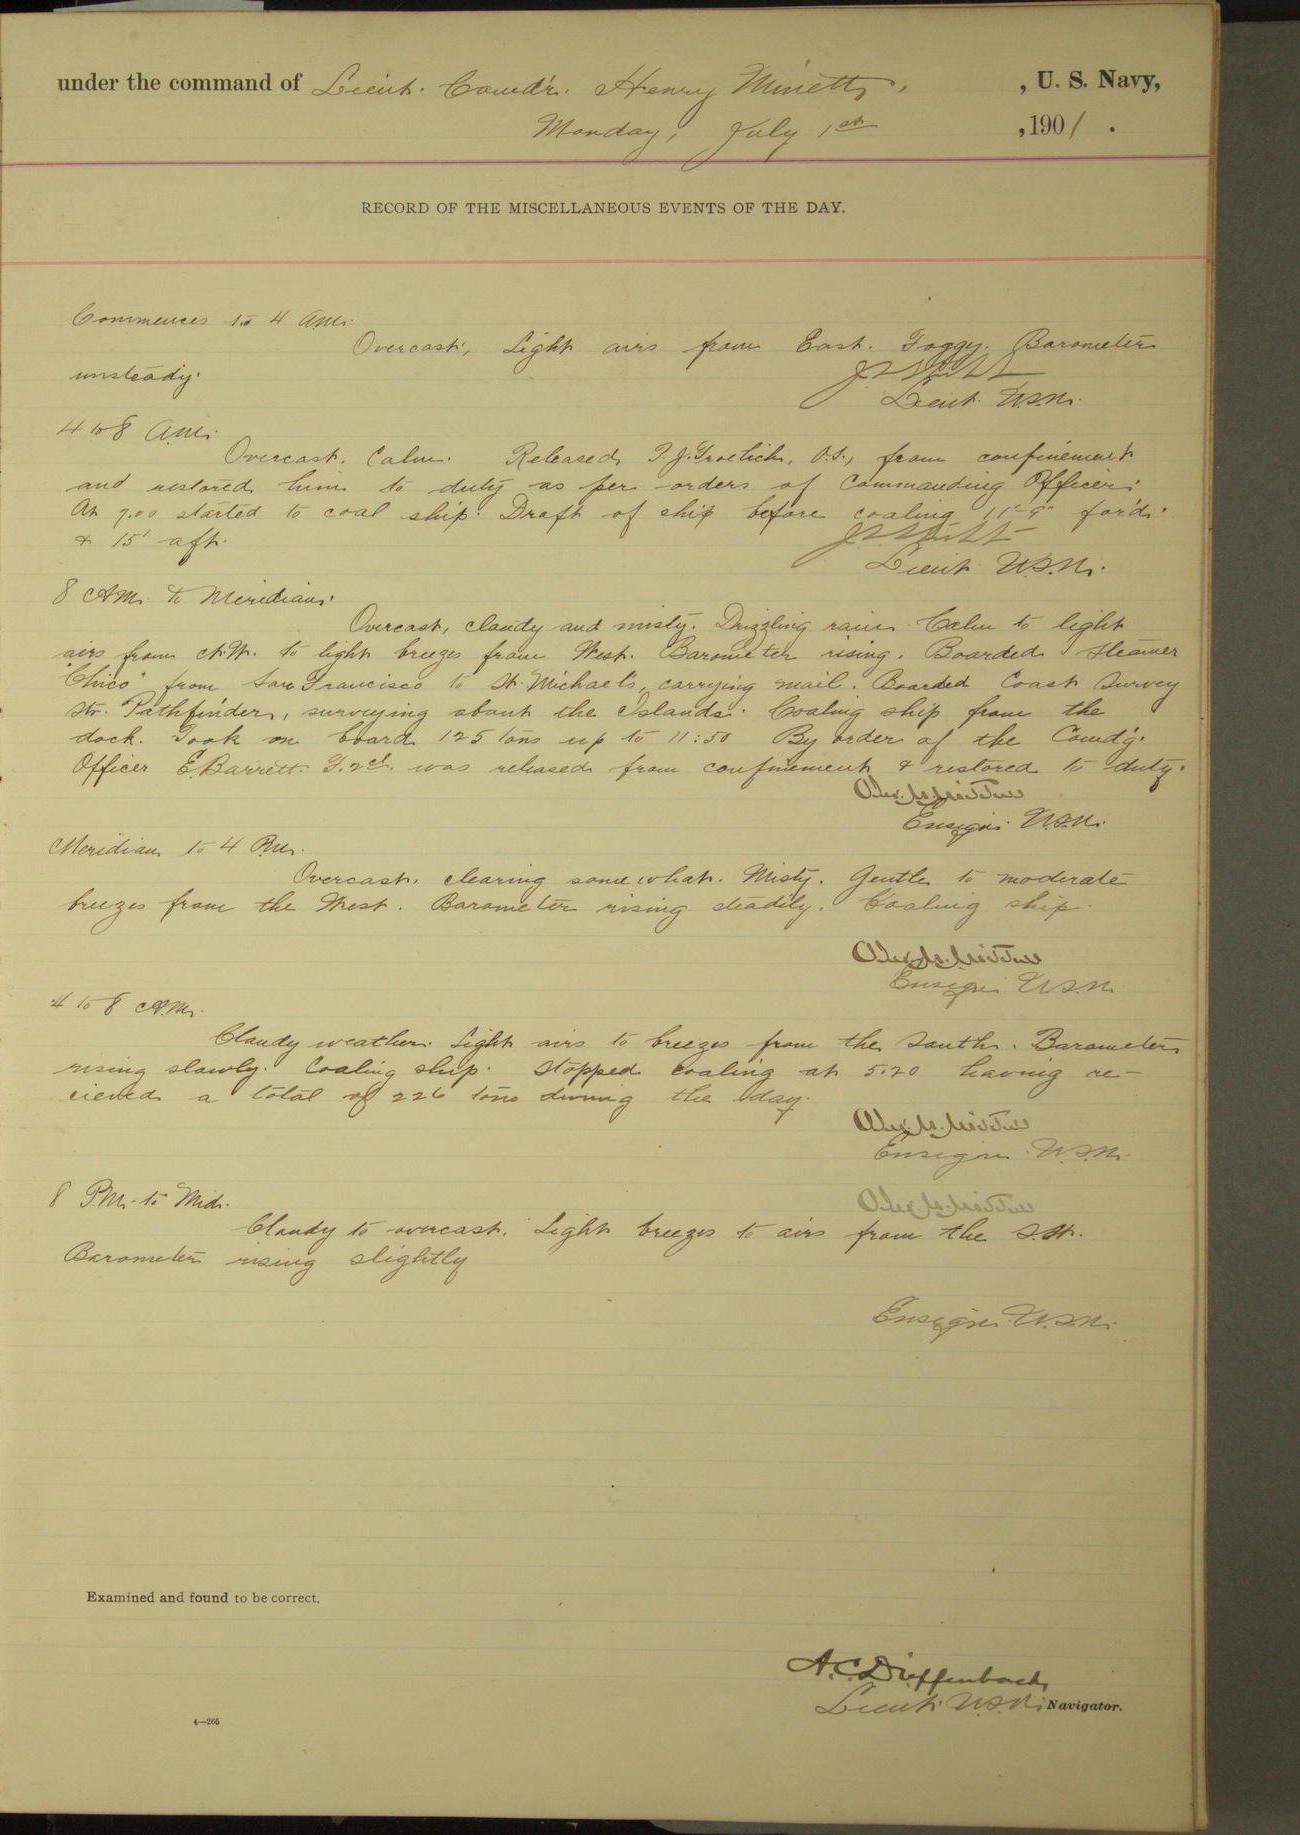 under the command of Lieut. Comd'r. Henry Minett, , U. S. Navy,
Monday, July 1st ,1901 .
RECORD OF THE MISCELLANEOUS EVENTS OF THE DAY.
Commences to 4 A.M.
Overcast, Light airs from East. Foggy. Barometer
unsteady.
Lieut. U.S.N.
4 to 8 A.M.
Overcast. Calm. Released, P.J. Froelich, O.S., from confinement
and restored him to duty as per orders of Commanding Officer.
At 7.00 started to coal ship. Draft of ship before coaling 11'-9" for'd.
& 15' aft.
Lieut. U.S.N.
8 A.M. to Meridian.
Overcast, cloudy and misty. Drizzling rain. Calm to light
airs from N.W. to light breezes from West. Barometer rising. Boarded Steamer
"Chico" from San Francisco to St. Michael's, carrying mail. Boarded Coast Survey
Str. Pathfinder, surveying about the Islands. Coaling ship from the
dock. Took on board 125 tons up to 11:50 By order of the Comd'g.
Officer E. Barrett. F.2cl. was released from confinement & restored to duty.
Ensign U.S.N.
Meridian to 4 P.M.
Overcast, clearing somewhat. Misty. Gentle to moderate
breezes from the West. Barometer rising steadily. Coaling ship.
Ensign U.S.N.
4 to 8 A.M.
Cloudy weather. Light airs to breezes from the South. Barometer
rising slowly. Coaling ship. Stopped coaling at 5.20 having re-
cieved a total of 226 tons during the day.
Ensign U.S.N.
8 P.M. to Mid.
Cloudy to overcast. Light breezes to airs from the S.W.
Barometer rising slightly
Ensign U.S.N.
Examined and found to be correct.
A.C. Dieffenbach
Lieut. U.S.N. Navigator.
4—265